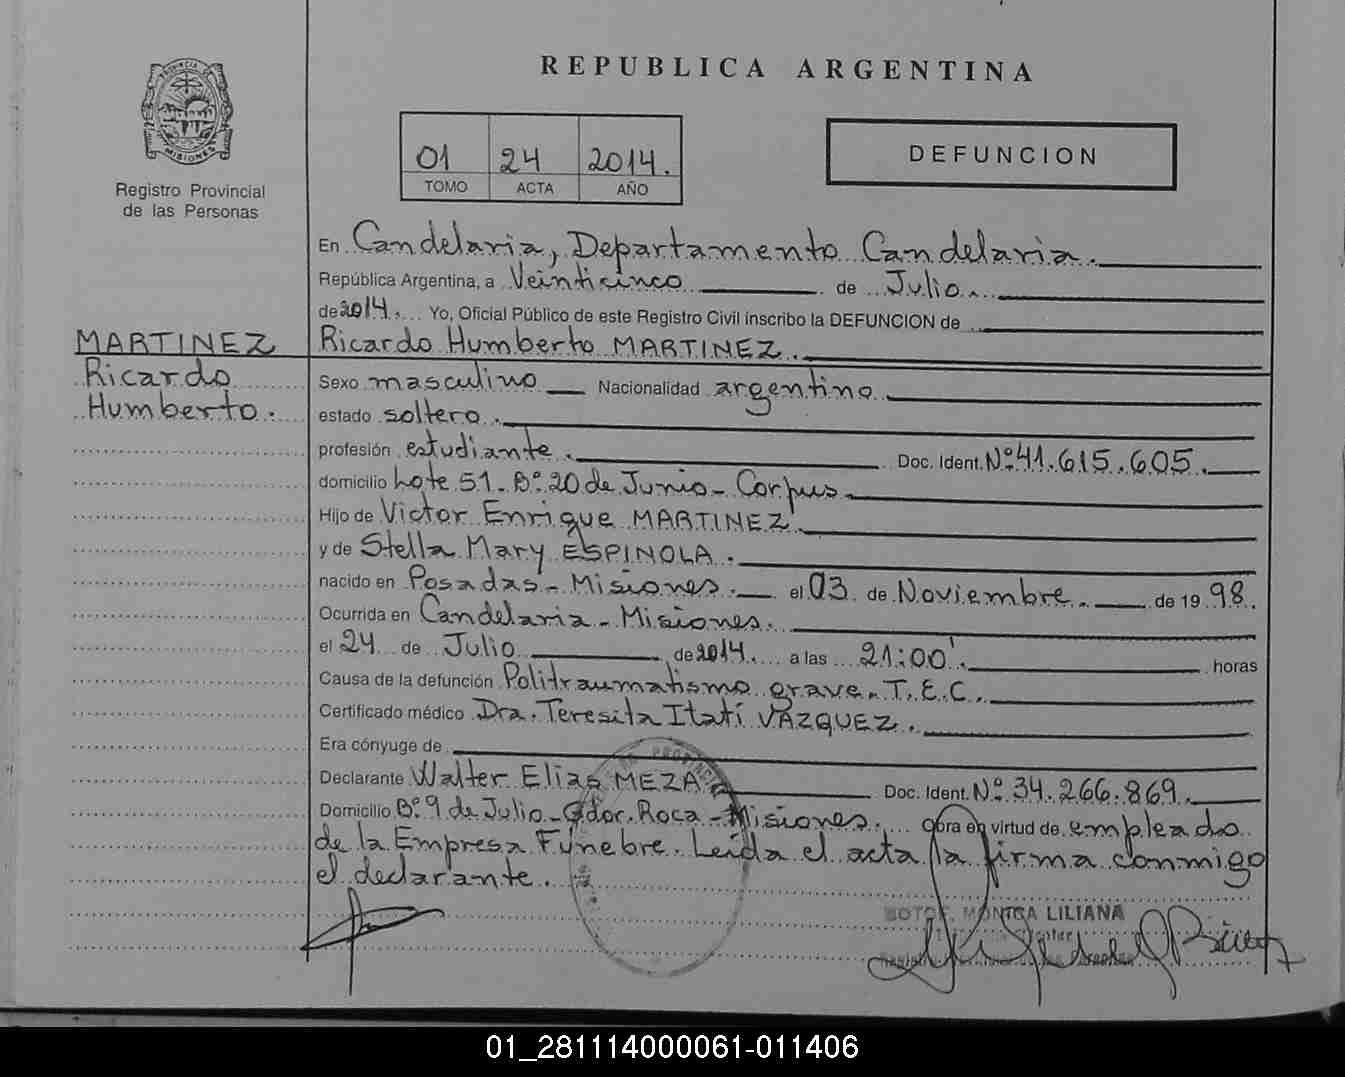 REPUBLICA ARGENTINA
PROVINCIA DE
MISIONES
Registro Provincial
de las Personas
01 24 2014.
TOMO ACTA AÑO
DEFUNCION
En Candelaria, Departamento Candelaria.
República Argentina, a Veinticinco de Julio.
de 2014. Yo, Oficial Público de este Registro Civil inscribo la DEFUNCION de
MARTINEZ
Ricardo
Humberto.
Ricardo Humberto MARTINEZ.
Sexo masculino Nacionalidad argentino
estado soltero.
profesión estudiante. Doc. Ident. Nº 41.615.605.
domicilio Lote 51 - Bº 20 de Junio - Corpus
Hijo de Victor Enrique MARTINEZ
y de Stella Mary ESPINOLA.
nacido en Posadas - Misiones. el 03 de Noviembre. de 19 98.
Ocurrida en Candelaria - Misiones.
el 24 de Julio de 2014. a las 21:00' horas
Causa de la defunción Politraumatismo grave. T.E.C.
Certificado médico Dra. Teresita Itatí VAZQUEZ.
Era cónyuge de
Declarante Walter Elias MEZA Doc. Ident. Nº 34.266.869.
Domicilio Bº 9 de Julio - Gdor. Roca - Misiones. Obra en virtud de empleado
de la Empresa Fúnebre. Leída el acta la firma conmigo
el declarante.
MONICA LILIANA
01_281114000061-011406